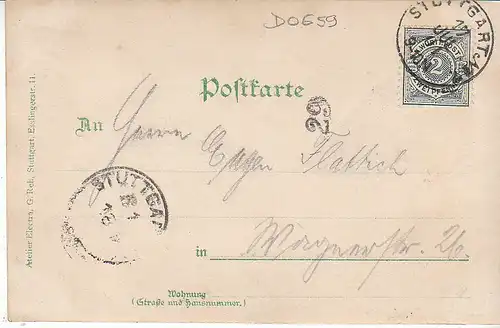 D0659
STUTTGART
2
Postkarte
26
An
Herrn Eugen Flattich
STUTTGART
in Wagnerstr. 26.
Wohnung
(Straße und Hausnummer.)
Atelier Electra, G. Reh, Stuttgart, Esslingerstr. 11.